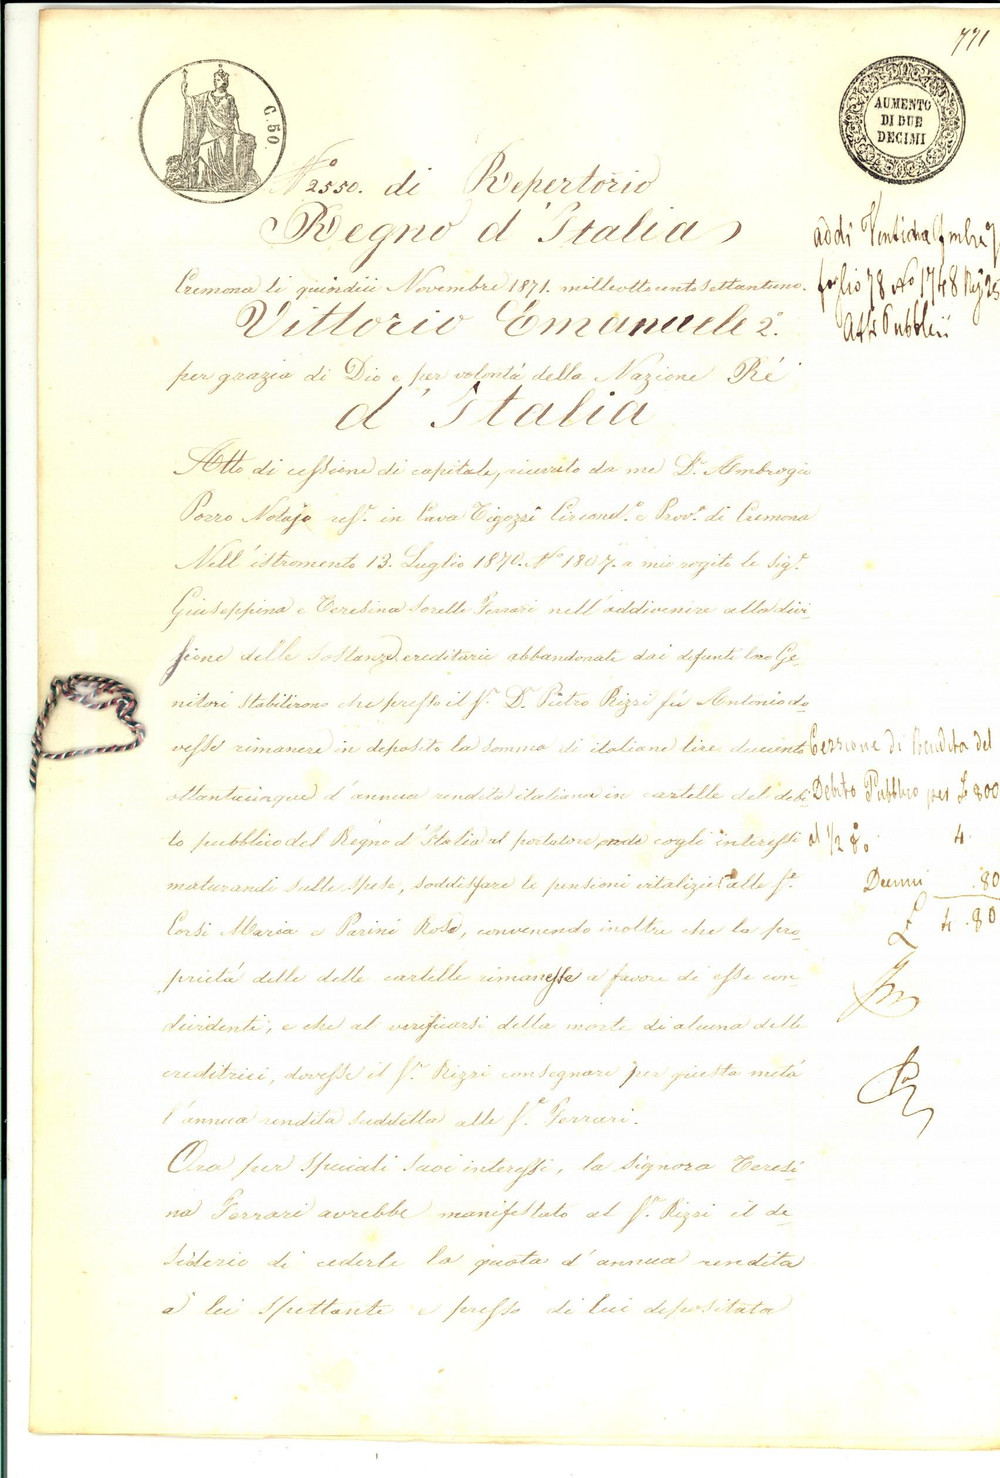 771
C. 50.
AUMENTO
DI DUE
DECIMI
N.° 2550. di Repertorio
Regno d'Italia
Cremona li quindici Novembre 1871. mille otto cento settantuno.
Vittorio Emanuele 2°.
per grazia di Dio e per volontá della Nazione Ré
d'Italia
Atto di cessione di capitale, ricevuto da me D.r Ambrogio
Porro Notajo res.e in Cava Tigozzi Circond.o e Prov.a di Cremona
Nell'istromento 13. Luglio 1870. N.o 1807. a mio rogito le sig.e
Giuseppina e Teresina sorelle Ferrari nell'addivenire alla divi-
sione delle sostanze ereditarie abbandonate dai defunti loro Ge-
nitori stabilirono che presso il S.r D.r Pietro Rizzi fú Antonio do-
vesse rimanere in deposito la somma di italiane lire duecento
ottantacinque d'annua rendita italiana in cartelle del debi-
to pubblico del Regno d'Italia al portatore, onde cogli interessi
maturandi sulle stesse, soddisfare le pensioni vitalizie alle S.e
Corsi Maria e Parini Rosa, convenendo inoltre che la pro-
prietá delle dette cartelle rimanesse a favore di esse con-
dividenti, e che al verificarsi della morte di alcuna delle
creditrici, dovesse il S.r Rizzi consegnare per giusta metá
l'annua rendita suddetta alle S.e Ferrari.
Ora per speciali suoi interessi, la signora Teresi-
na Ferrari avrebbe manifestato al S.r Rizzi il de-
siderio di cederle la quota d'annua rendita
a lei spettante e presso di lui depositata
addi Ventidue 9mbre
foglio 78 No 1748 Reg 25
Atti Pubblici
Cessione di Rendita del
Debito Pubblico per £ 800
al 1/2 %. 4.
Decimi .80
£ 4.80